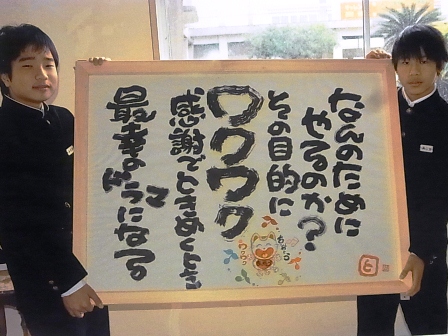 なんのために
やるのか?
その目的に
ワクワク
感謝でときめくとき
最幸のドラマになる
ワクワク